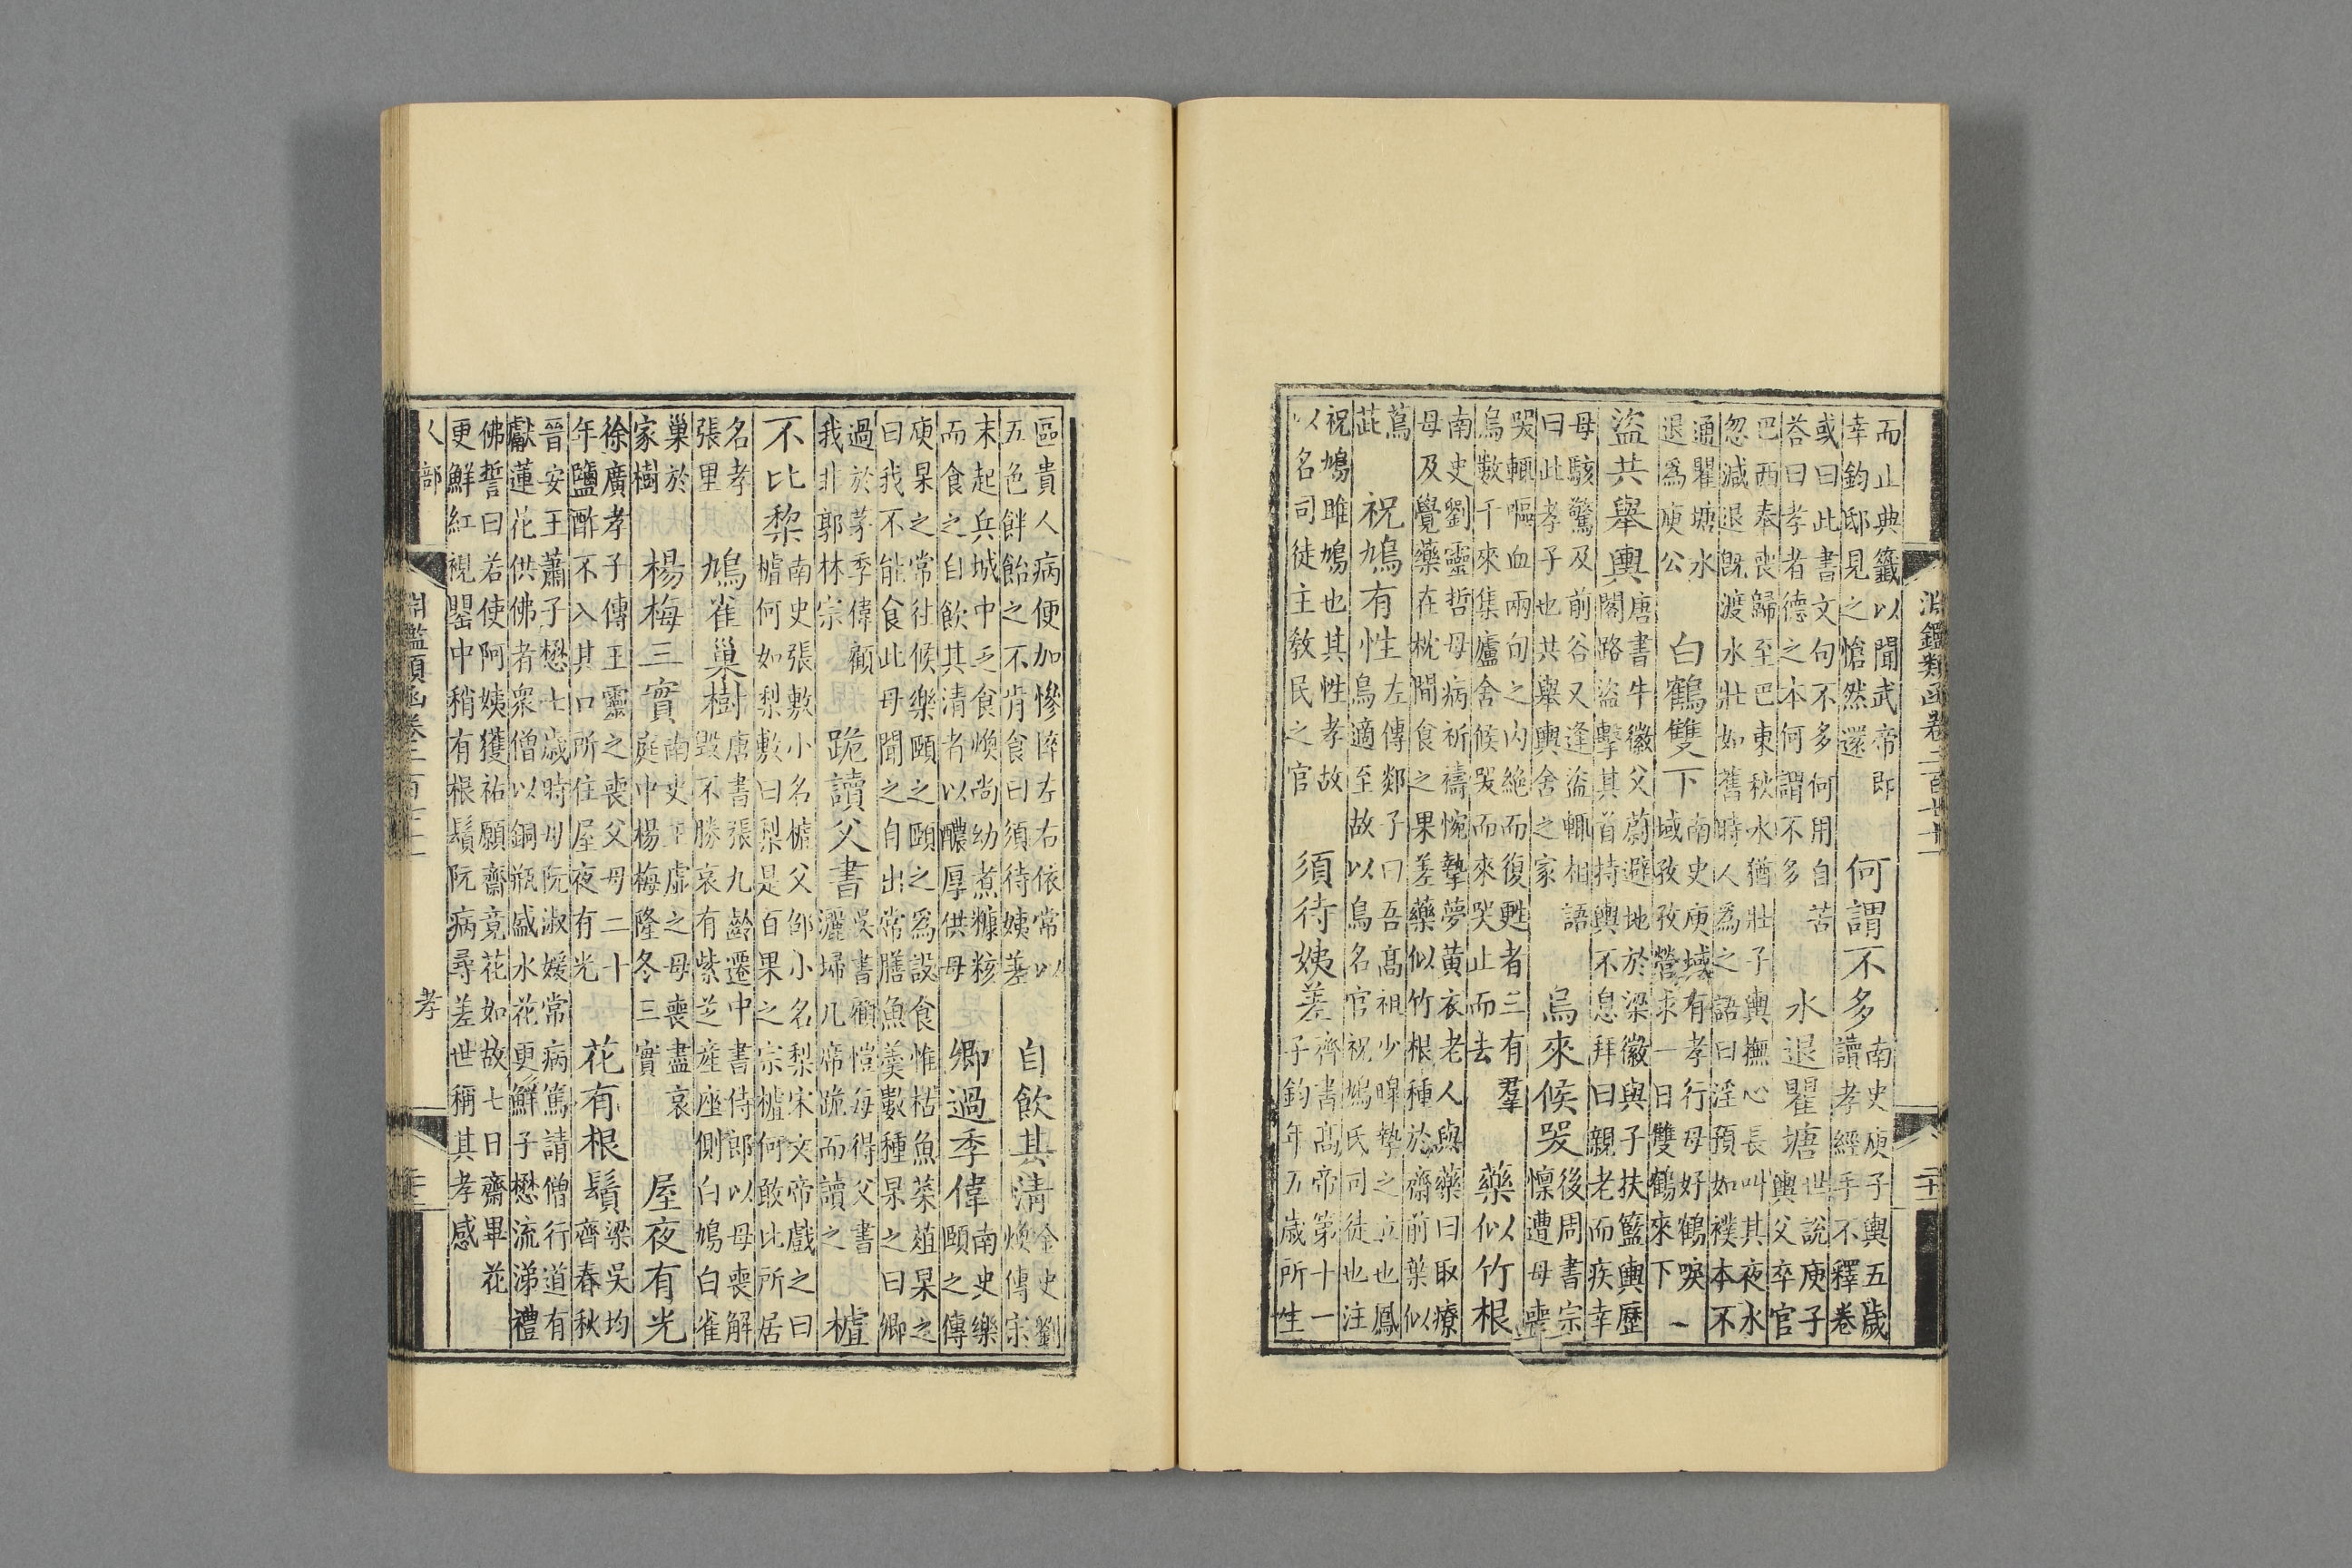 淵鑑類函卷二百七十一
二十
而止典籤以聞武帝即
幸鈞邸見之愴然還
何謂不多
南史庾子輿五歲
讀孝經手不釋卷
或曰此書文句不多何用自苦
荅曰孝者德之本何謂不多
水退瞿塘
世說庾子
輿父卒官
巴西奉喪歸至巴東秋水猶壯子輿撫心長叫其夜水
忽減退旣渡水壯如舊時人爲之語曰淫預如襆本不
通瞿塘水
退爲庾公
白鶴雙下
南史庾域有孝行母好鶴唳
域孜孜營求一日雙鶴來下
一
盜共舉輿
唐書牛徽父蔚避地於梁徽與子扶籃輿歷
閣路盜擊其首持輿不息拜曰親老而疾幸
母駭驚及前谷又逢盜輒相語
曰此孝子也共舉輿舍之家
烏來候哭
後周書宗
懍遭母喪
哭輒嘔血兩旬之内絶而復甦者三有羣
烏數千來集廬舍候哭而來哭止而去
藥似竹根
南史劉靈哲母病祈禱惋摯夢黄衣老人與藥曰取療
母及覺藥在枕間食之果差藥似竹根種於齋前葉似
蔦
茈
祝鳩有性
左傳郯子曰吾高祖少皞摯之立也鳳
鳥適至故以鳥名官祝鳩氏司徒也注
祝鳩鵻鳩也其性孝故
以名司徒主敎民之官
須待姨差
齊書高帝第十一
子鈞年五歲所生
區貴人病便加慘悴左右依常以
五色餅飴之不肯食曰須待姨差
自飲其清
金史劉
煥傳宗
末起兵城中乏食煥尚幼煮糠核
而食之自飲其清者以醲厚供母
卿過季偉
南史樂
頤之傳
庾杲之常往候樂頤之頤之爲設食惟枯魚菜葅杲之
曰我不能食此母聞之自出常膳魚羹數種杲之曰卿
過於茅季偉顧
我非郭林宗
跪讀父書
吳書顧愷每得父書
灑埽几席跪而讀之
樝
不比棃
南史張敷小名樝父邵小名梨宋文帝戲之曰
樝何如梨敷曰梨是百果之宗樝何敢比所居
名孝
張里
鳩雀巢樹
唐書張九齡遷中書侍郎以母喪解
毀不勝哀有紫芝產座側白鳩白雀
巢於
家樹
楊梅三實
南史王虛之母喪盡哀
庭中楊梅隆冬三實
屋夜有光
徐廣孝子傳王靈之喪父母二十
年鹽酢不入其口所住屋夜有光
花有根鬚
梁吳均
齊春秋
晉安王蕭子懋七歲時母阮淑媛常病篤請僧行道有
獻蓮花供佛者衆僧以銅瓶盛水花更鮮子懋流涕禮
佛誓曰若使阿姨獲祐願齋竟花如故七日齋畢花
更鮮紅視罌中稍有根鬚阮病尋差世稱其孝感
人部
孝